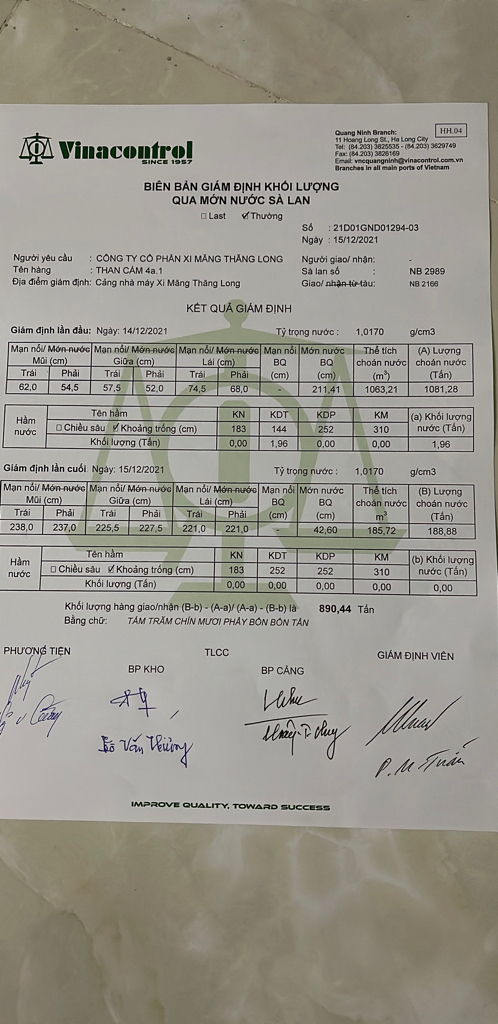 Vinacontrol
SINCE 1957
HH.04
Quang Ninh Branch:
11 Hoang Long St., Ha Long City
Tel: (84.203) 3825535 - (84.203) 3629749
Fax: (84.203) 3826169
Email: vncquangninh@vinacontrol.com.vn
Branches in all main ports of Vietnam
BIÊN BẢN GIÁM ĐỊNH KHỐI LƯỢNG
QUA MỚN NƯỚC SÀ LAN
Last Thường
Số : 21D01GND01294-03
Ngày : 15/12/2021
Người yêu cầu : CÔNG TY CỔ PHẦN XI MĂNG THĂNG LONG Người giao/ nhận: -
Tên hàng : THAN CÁM 4a.1 Sà lan số : NB 2989
Địa điểm giám định: Cảng nhà máy Xi Măng Thăng Long Giao/ nhận từ tàu: NB 2166
KẾT QUẢ GIÁM ĐỊNH
Giám định lần đầu: Ngày: 14/12/2021 Tỷ trọng nước : 1,0170 g/cm3
Mạn nổi/ Mớn nước Mũi (cm) Mạn nổi/ Mớn nước Giữa (cm) Mạn nổi/ Mớn nước Lái (cm) Mạn nổi BQ (cm) Mớn nước BQ (cm) Thể tích choán nước (m3) (A) Lượng choán nước (Tấn)
Trái Phải Trái Phải Trái Phải
62,0 54,5 57,5 52,0 74,5 68,0 - 211,41 1063,21 1081,28
Hầm nước Tên hầm KN KDT KDP KM (a) Khối lượng nước (Tấn)
Chiều sâu Khoảng trống (cm) 183 144 252 310
Khối lượng (Tấn) 0,00 1,96 0,00 0,00 1,96
Giám định lần cuối Ngày: 15/12/2021 Tỷ trọng nước : 1,0170 g/cm3
Mạn nổi/ Mớn nước Mũi (cm) Mạn nổi/ Mớn nước Giữa (cm) Mạn nổi/ Mớn nước Lái (cm) Mạn nổi BQ (cm) Mớn nước BQ (cm) Thể tích choán nước m3 (B) Lượng choán nước (Tấn)
Trái Phải Trái Phải Trái Phải
238,0 237,0 225,5 227,5 221,0 221,0 - 42,60 185,72 188,88
Hầm nước Tên hầm KN KDT KDP KM (b) Khối lượng nước (Tấn)
Chiều sâu Khoảng trống (cm) 183 252 252 310
Khối lượng (Tấn) 0,00 0,00 0,00 0,00 0,00
Khối lượng hàng giao/nhận (B-b) - (A-a)/ (A-a) - (B-b) là 890,44 Tấn
Bằng chữ: TÁM TRĂM CHÍN MƯƠI PHẨY BỐN BỐN TẤN
PHƯƠNG TIỆN TLCC GIÁM ĐỊNH VIÊN
BP KHO BP CẢNG
Đỗ Văn Thường
P.M. Tuấn
IMPROVE QUALITY, TOWARD SUCCESS